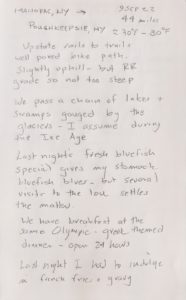 MAHOPAC, NY → 9 SEP 22
44 miles
POUGHKEEPSIE, NY 230F - 80°F
Upstate rails to trails
well paved bike path.
Slightly uphill - but RR
grade so not too steep
We pass a chain of lakes +
swamps gouged by the
glaciers - I assume during
the Ice Age
Last night's fresh bluefish
special gives my stomach
bluefish blues - but several
visits to the loo settles
the matter.
We have breakfast at the
same Olympic - greek themed
dinner - open 24 hours
Last night I had to indulge
in french fries + gravy